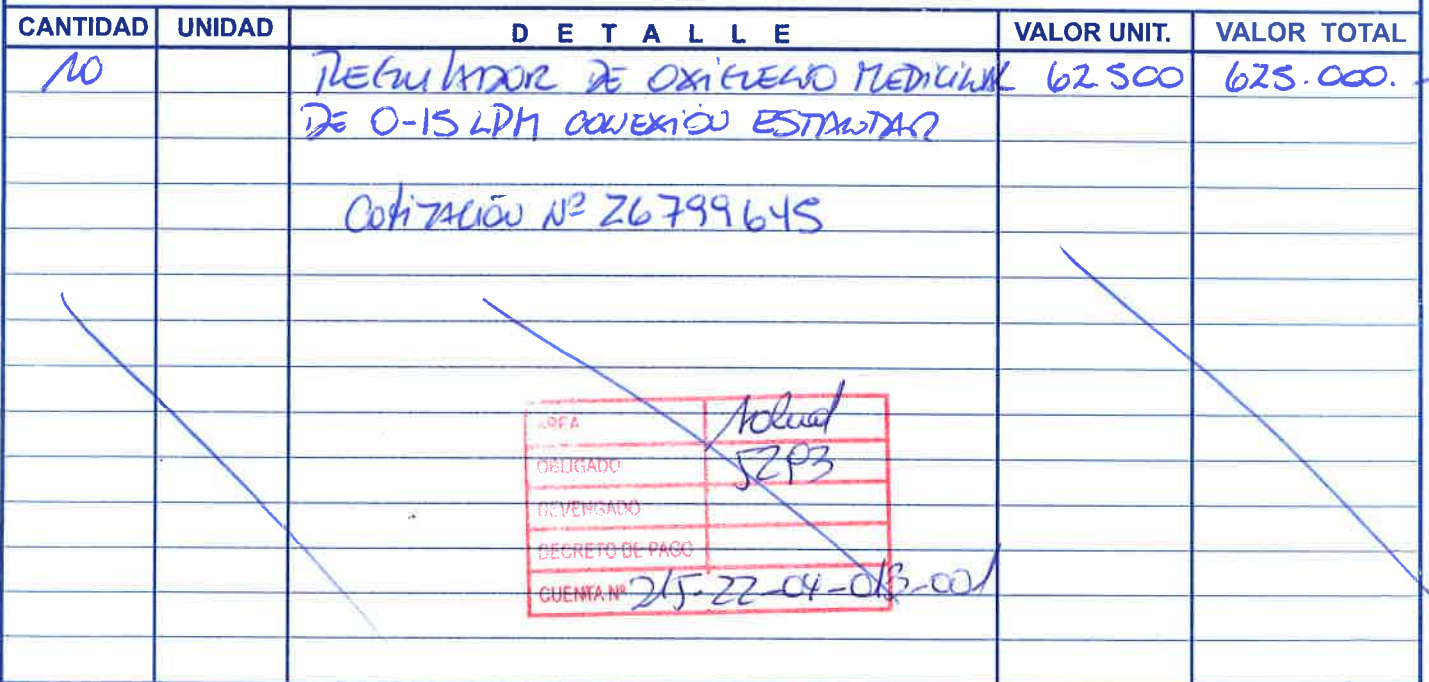 CANTIDAD UNIDAD DETALLE VALOR UNIT. VALOR TOTAL
10 REGULADOR DE OXIGENO MEDICINAL 62.500 625.000.-
DE 0-15 LPM CONEXIÓN ESTANDAR
Cotización Nº 26799645
AREA Salud
OBLIGADO
DEVENGADO
DECRETO DE PAGO
CUENTA Nº 215-22-04-013-001